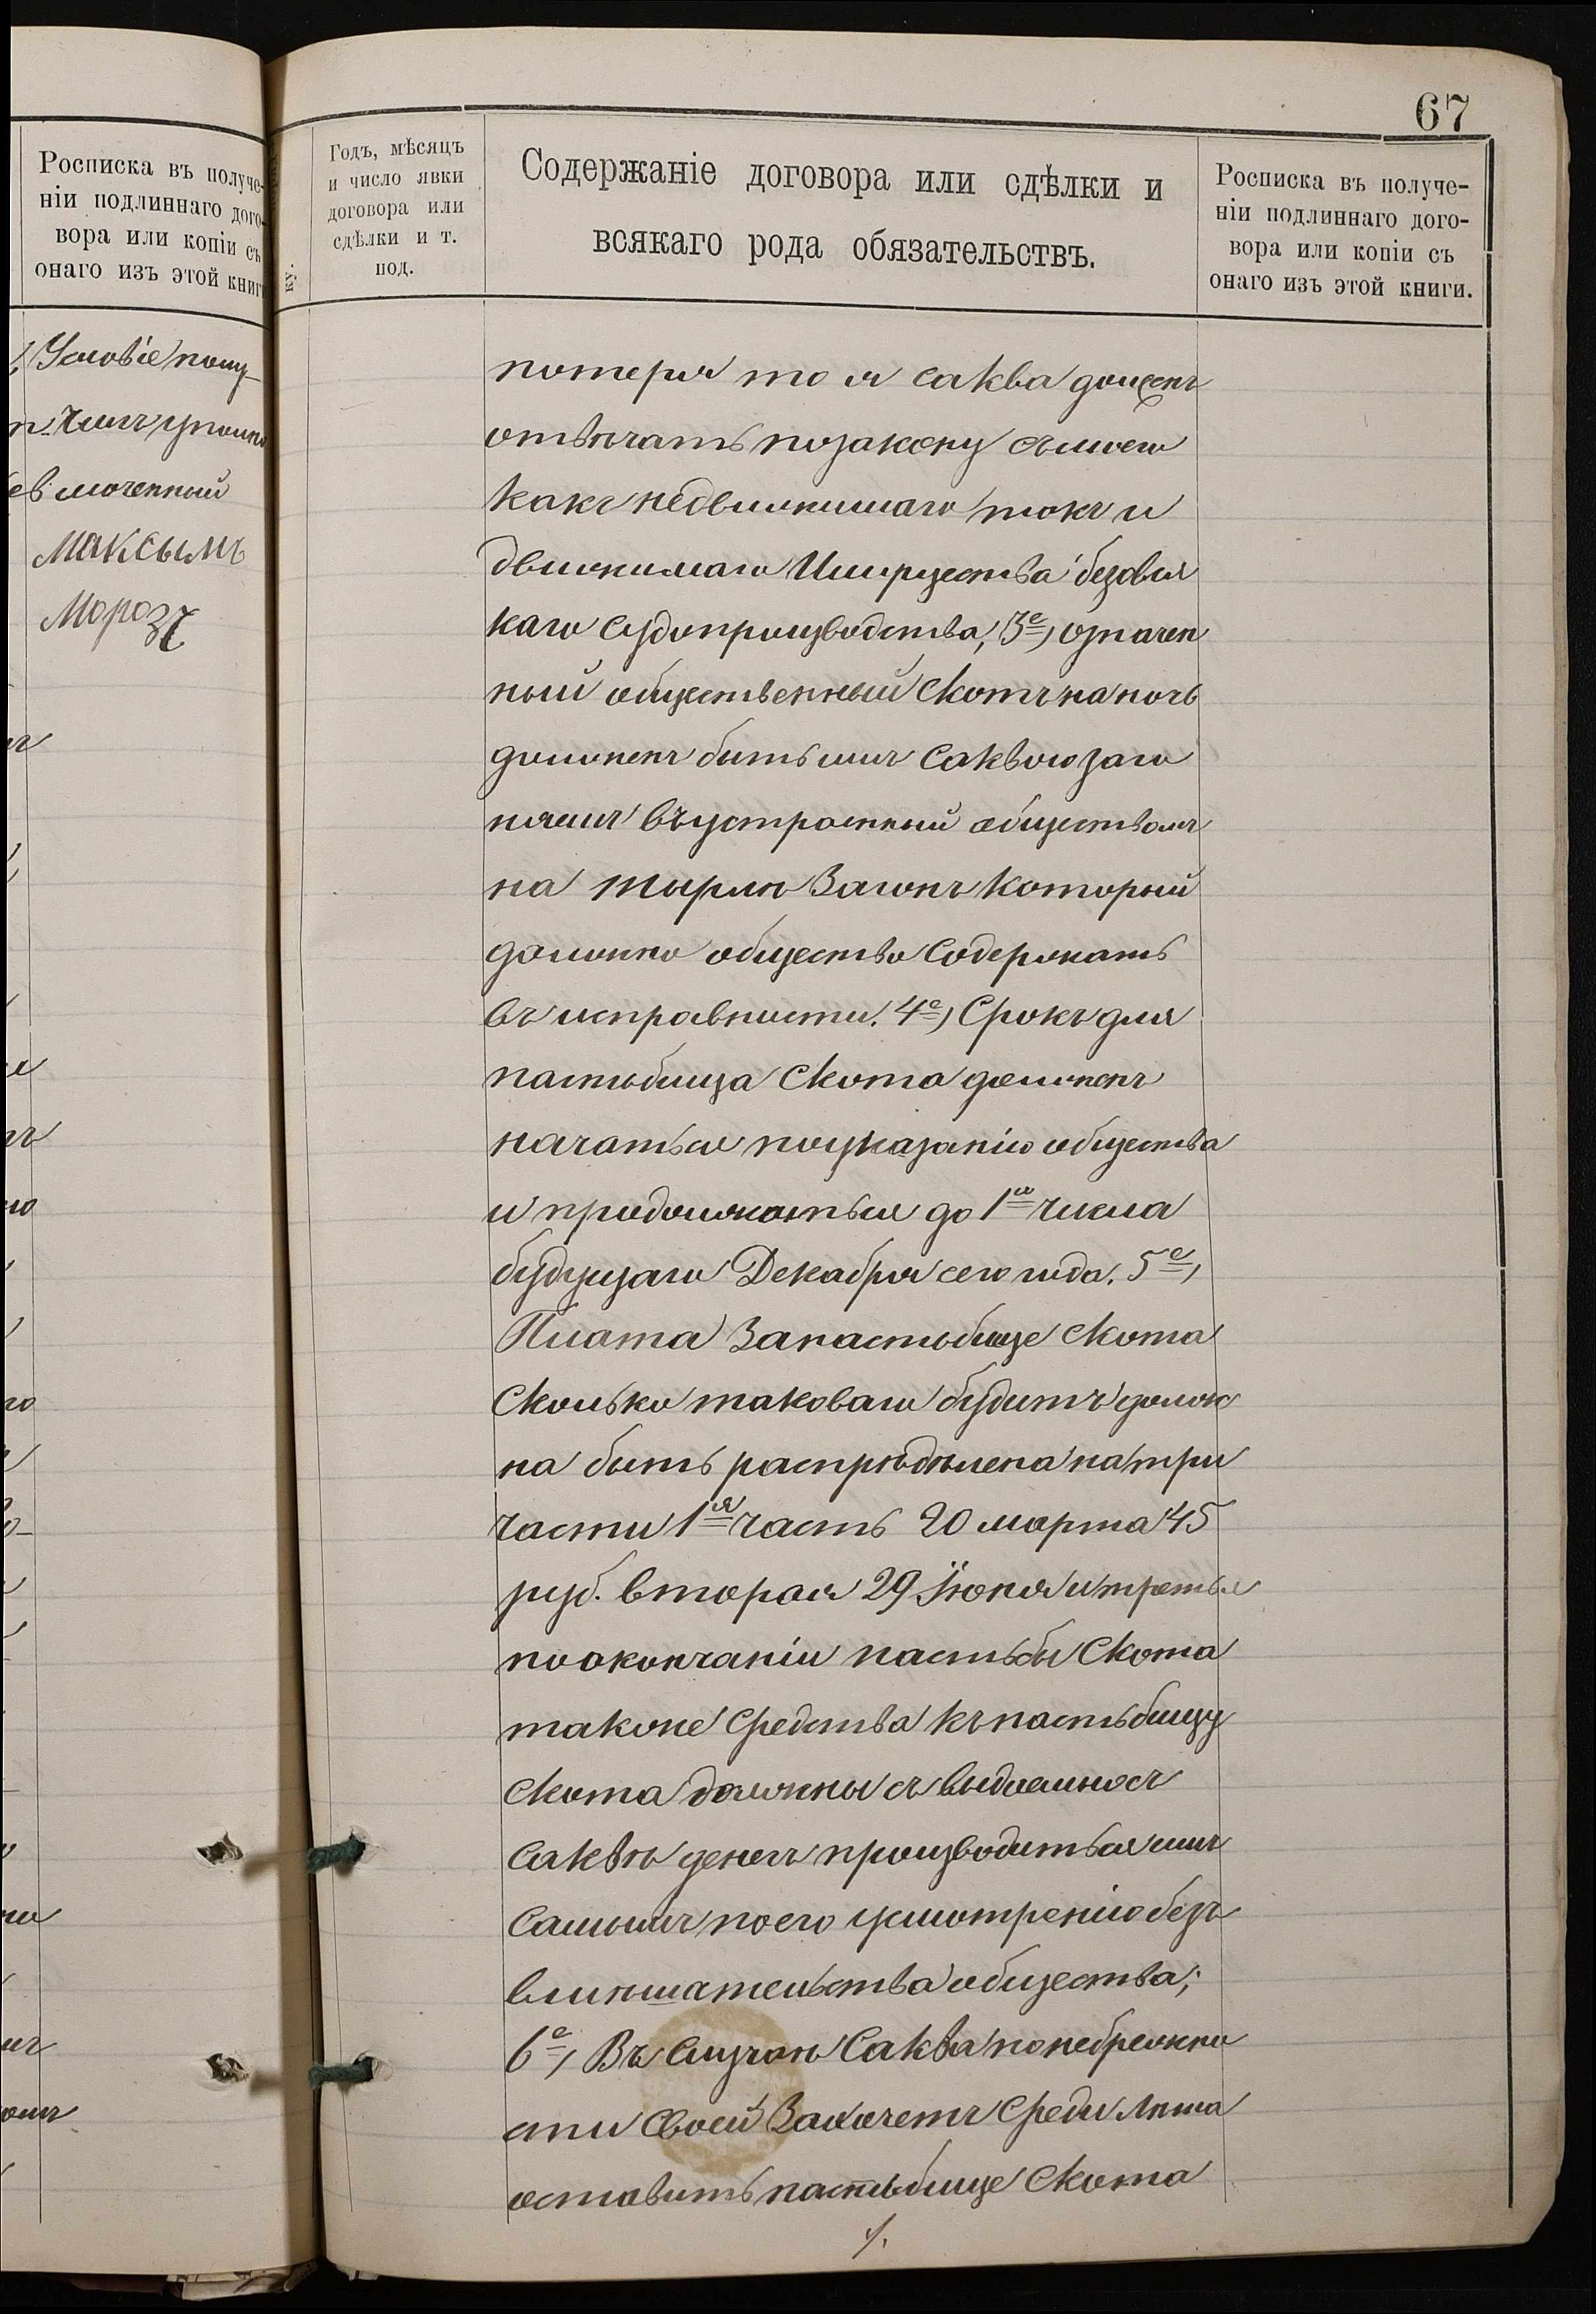 67
Росписка въ получе-
ніи подлиннаго дого-
вора или копіи съ
онаго изъ этой книги
Условіе полу-
чилъ уполно
моченный
Максымъ
Морозъ
Годъ, мѣсяцъ
и число явки
договора или
сдѣлки и т.
под.
Содержаніе договора или сдѣлки и
всякаго рода обязательствъ.
Росписка въ получе-
ніи подлиннаго дого-
вора или копіи съ
онаго изъ этой книги.
потеря то я Саква долженъ
отвѣчать позакону съмоего
какъ недвижимаго такъ и
движимаго Имущества безовся
каго судопроизводства, 3е) означен
ный общественный Скотъ на ночь
долженъ быть имъ Саквою заго
няемъ въ устроенный обществомъ
на тырлѣ Загонъ который
должно общество Содержать
въ исправности. 4е) Срокъ для
пастьбища Скота долженъ
начаться поуказанію общества
и продолжаться до 1го числа
будущаго Декабря сего года. 5е)
Плата Запастьбище Скота
Сколько таковаго будитъ долж
на быть распрѣдѣлена на три
части 1я часть 20 марта 45
руб. вторая 29 Іюня и третья
по окончаніи пастьбы Скота
такоже Средства къ пастьбищу
Скота должны съ выдаемыхъ
Саквѣ денегъ производиться имъ
Самымъ по его усмотренію безъ
вмѣшательства общества;
6е) Въ Случаѣ Саква по небрежно
сти Своей Захочетъ Среди лѣта
оставить пастьбище Скота